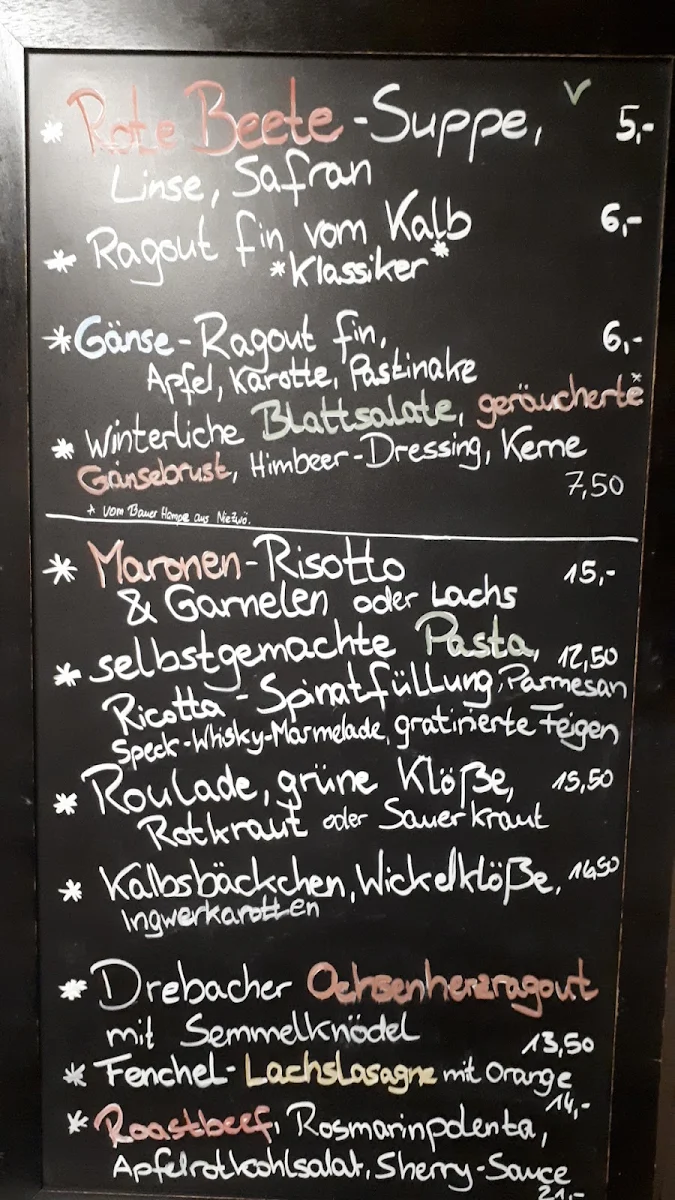 * Rote Beete-Suppe, V 5,-
Linse, Safran
* Ragout fin vom Kalb 6,-
*Klassiker*
* Gänse-Ragout fin, 6,-
Apfel, Karotte, Pastinake
* Winterliche Blattsalate, geräucherte*
Gänsebrust, Himbeer-Dressing, Kerne
7,50
* vom Bauer Hampe aus
* Maronen-Risotto 15,-
& Garnelen oder Lachs
* selbstgemachte Pasta, 12,50
Ricotta-Spinatfüllung, Parmesan
Speck-Whisky-Marmelade, gratinierte Feigen
* Roulade, grüne Klöße, 15,50
Rotkraut oder Sauerkraut
* Kalbsbäckchen, Wickelklöße, 16,50
Ingwerkarotten
* Drebacher Ochsenherzragout
mit Semmelknödel 13,50
* Fenchel-Lachslasagne mit Orange
14,-
* Roastbeef, Rosmarinpolenta,
Apfelrotkohlsalat, Sherry-Sauce
21,-